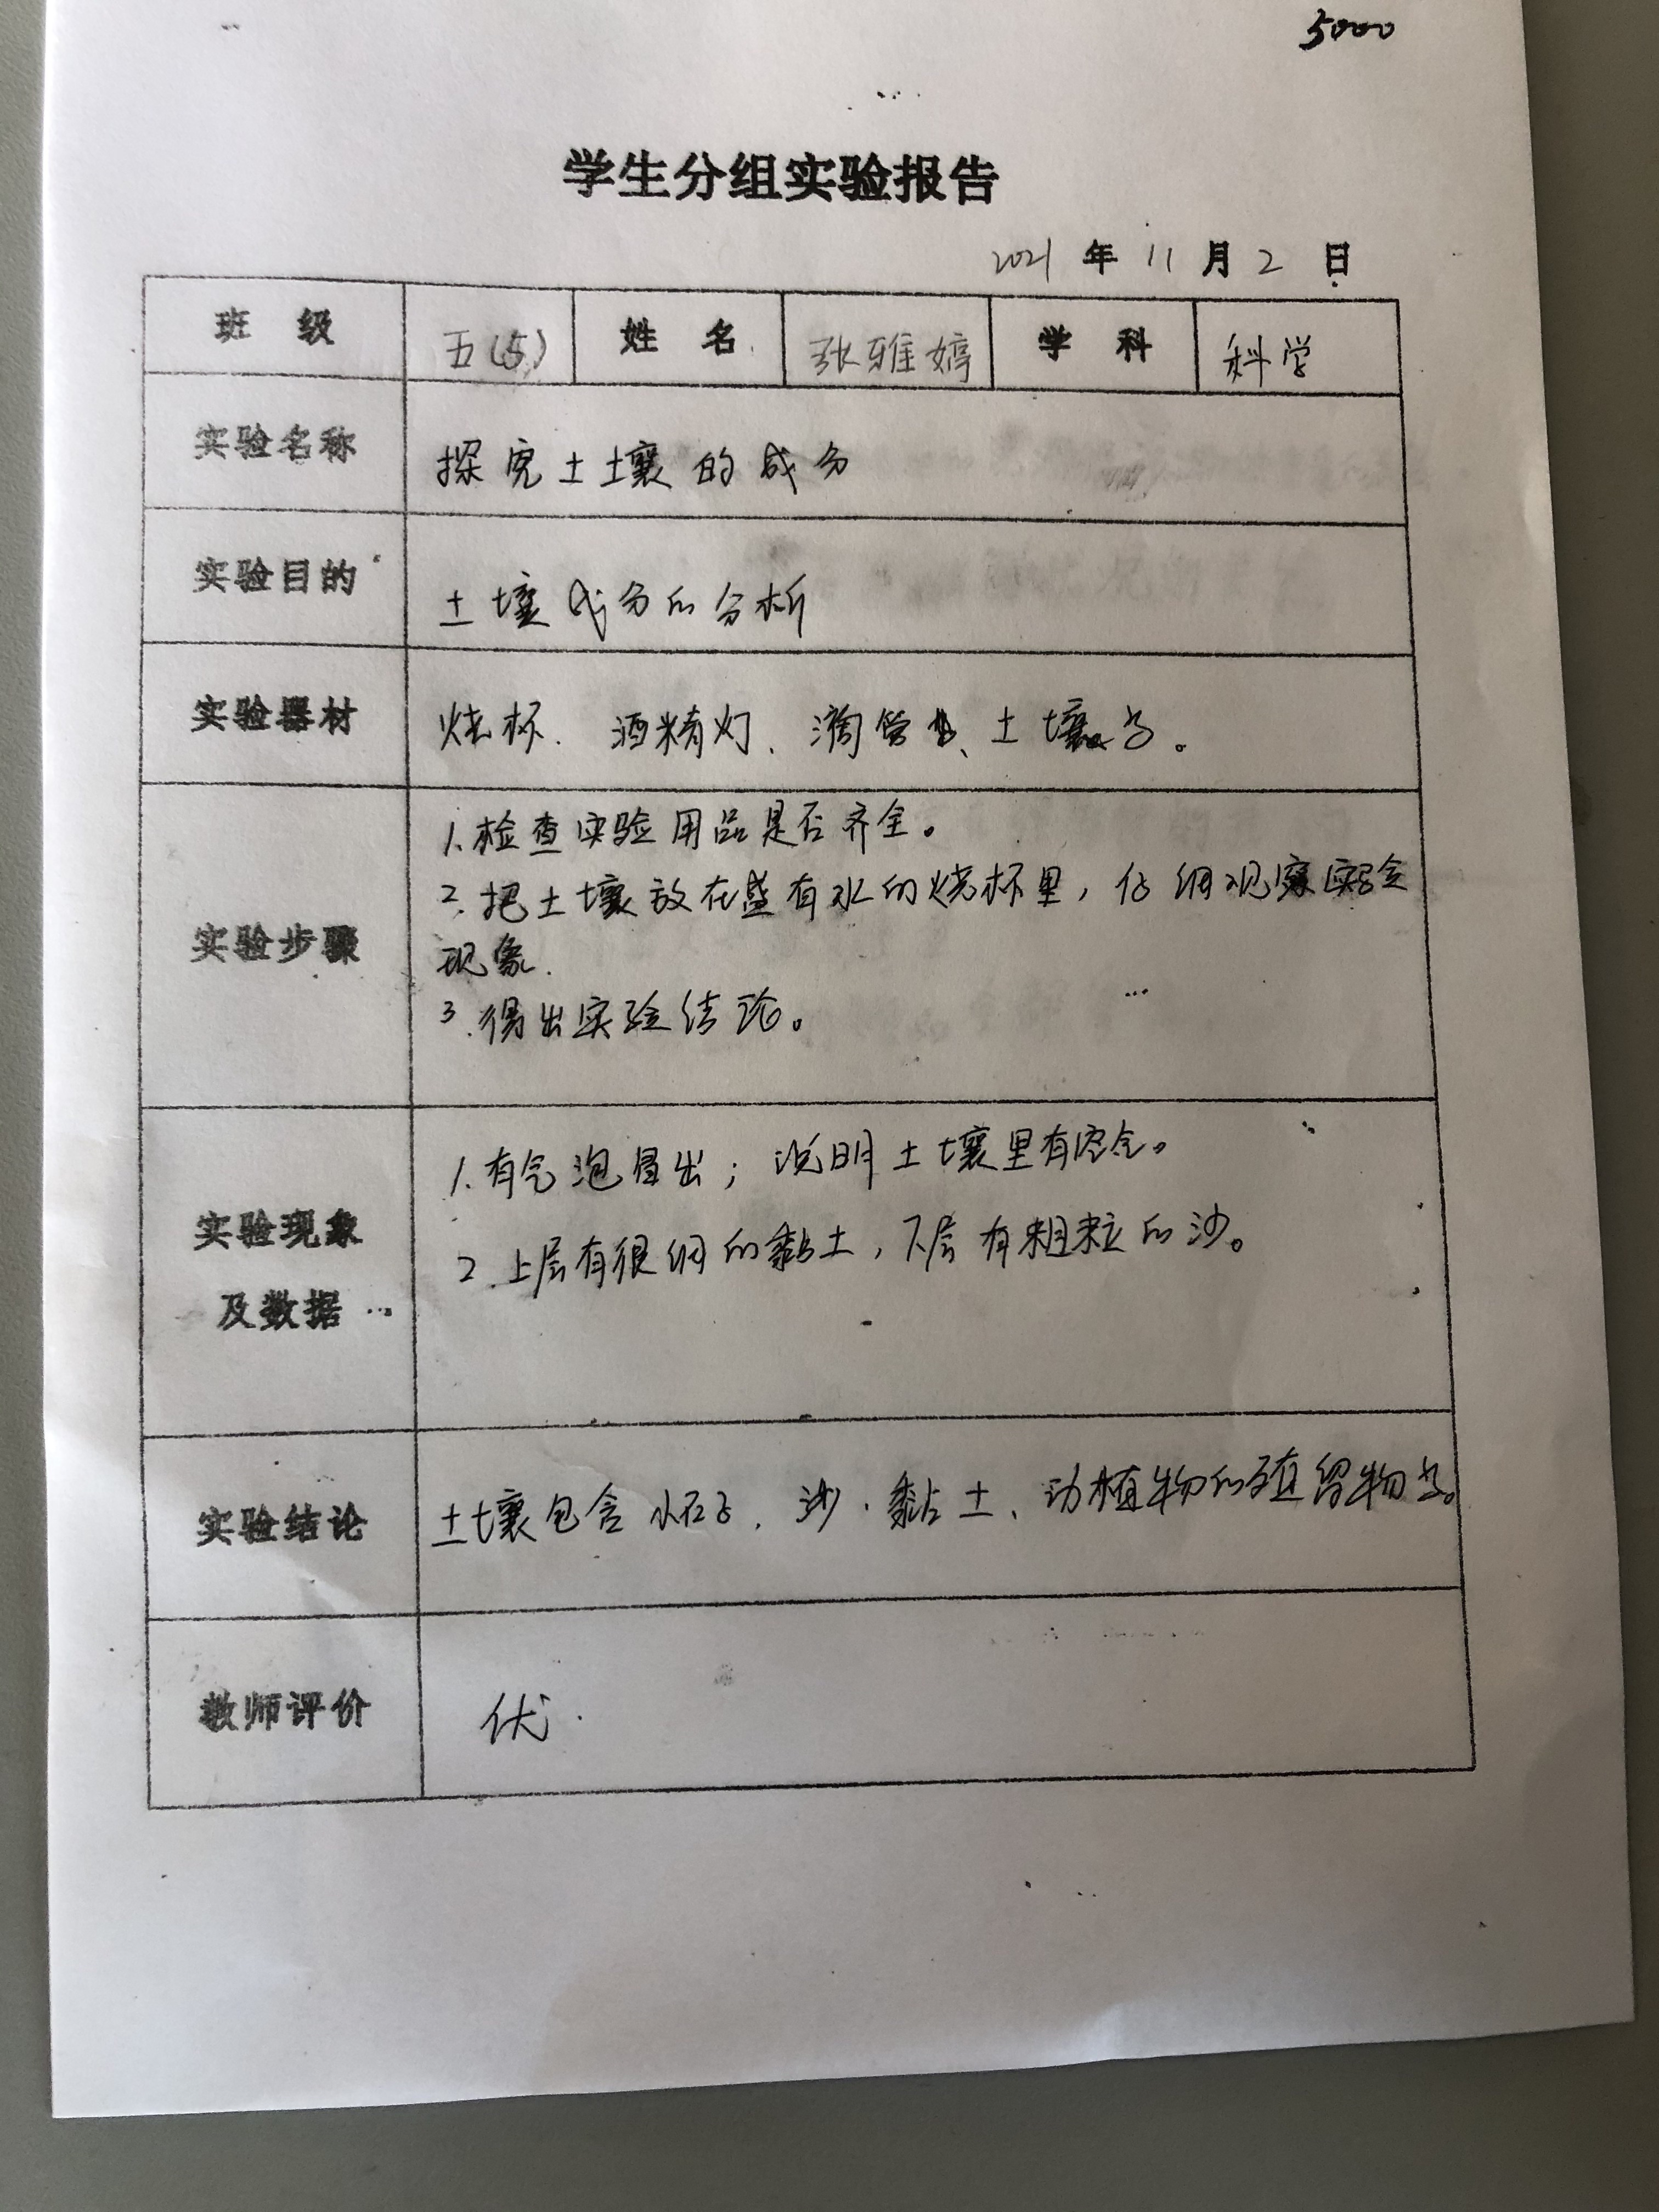 5000
学生分组实验报告
2021 年 11 月 2 日
班 级 五(5) 姓 名 张雅婷 学 科 科学
实验名称 探究土壤的成分
实验目的 土壤成分的分析
实验器材 烧杯、酒精灯、滴管、土壤等。
1.检查实验用品是否齐全。
2.把土壤放在盛有水的烧杯里,仔细观察实验
实验步骤 现象.
3.得出实验结论。
1.有气泡冒出;说明土壤里有空气。
实验现象 2.上层有很细的黏土,下层有粗粒的沙。
及数据
实验结论 土壤包含小石子、沙、黏土、动植物的殖留物等。
教师评价 优.